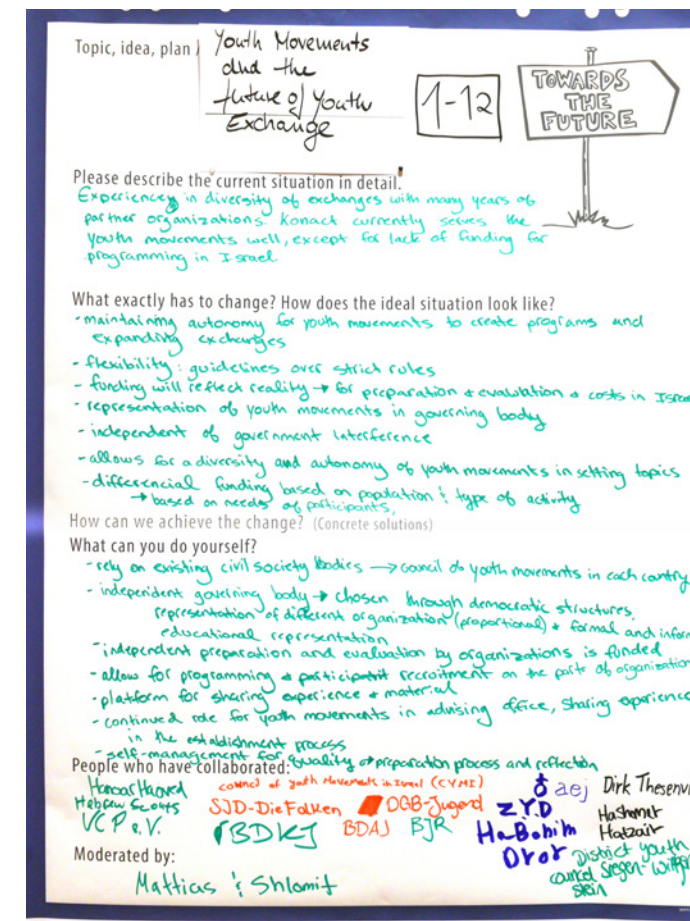 Topic, idea, plan
Youth Movements
and the
future of Youth
Exchange
1-12
TOWARDS
THE
FUTURE
Please describe the current situation in detail.
Experiences in diversity of exchanges with many years of
partner organizations. Konact currently serves the
youth movements well, except for lack of funding for
programming in Israel
What exactly has to change? How does the ideal situation look like?
- maintaining autonomy for youth movements to create programs and
expanding exchanges
- flexibility: guidelines over strict rules
- funding will reflect reality → for preparation + evaluation + costs in Israe
- representation of youth movements in governing body
- independent of government interference
- allows for a diversity and autonomy of youth movements in setting topics
- differencial funding based on population & type of activity
→ based on needs of participants,
How can we achieve the change? (Concrete solutions)
What can you do yourself?
- rely on existing civil society bodies → council of youth movements in each country
- independent governing body → chosen through democratic structures,
representation of different organization (proportional) + formal and inform
educational representation
- independent preparation and evaluation by organizations is funded
- allow for programming + participant recruitment on the part of organization
- platform for sharing experience + material
- continued role for youth movements in advising office, sharing experience
in the establishment process
- self-management for quality of preparation process and reflection
People who have collaborated:
HanoarHaoved
Hebrew Scouts
VCP e.V.
council of youth Movements in Israel (CYMI)
SJD-Die Falken
DGB-Jugend
BDKJ
BDAJ
BJR
aej
ZYD
HaBonim
Dror
Dirk Thesenvi
Hashomer
Hatzair
District youth
council Siegen-Wittgen
stein
Moderated by:
Mattias & Shlomit